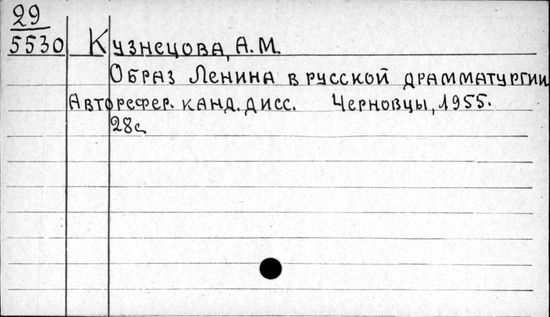 29
5530 Кузнецова, А.М.
Образ Ленина в русской драмматургии
Авторефер. канд. дисс. Черновцы, 1955.
28с